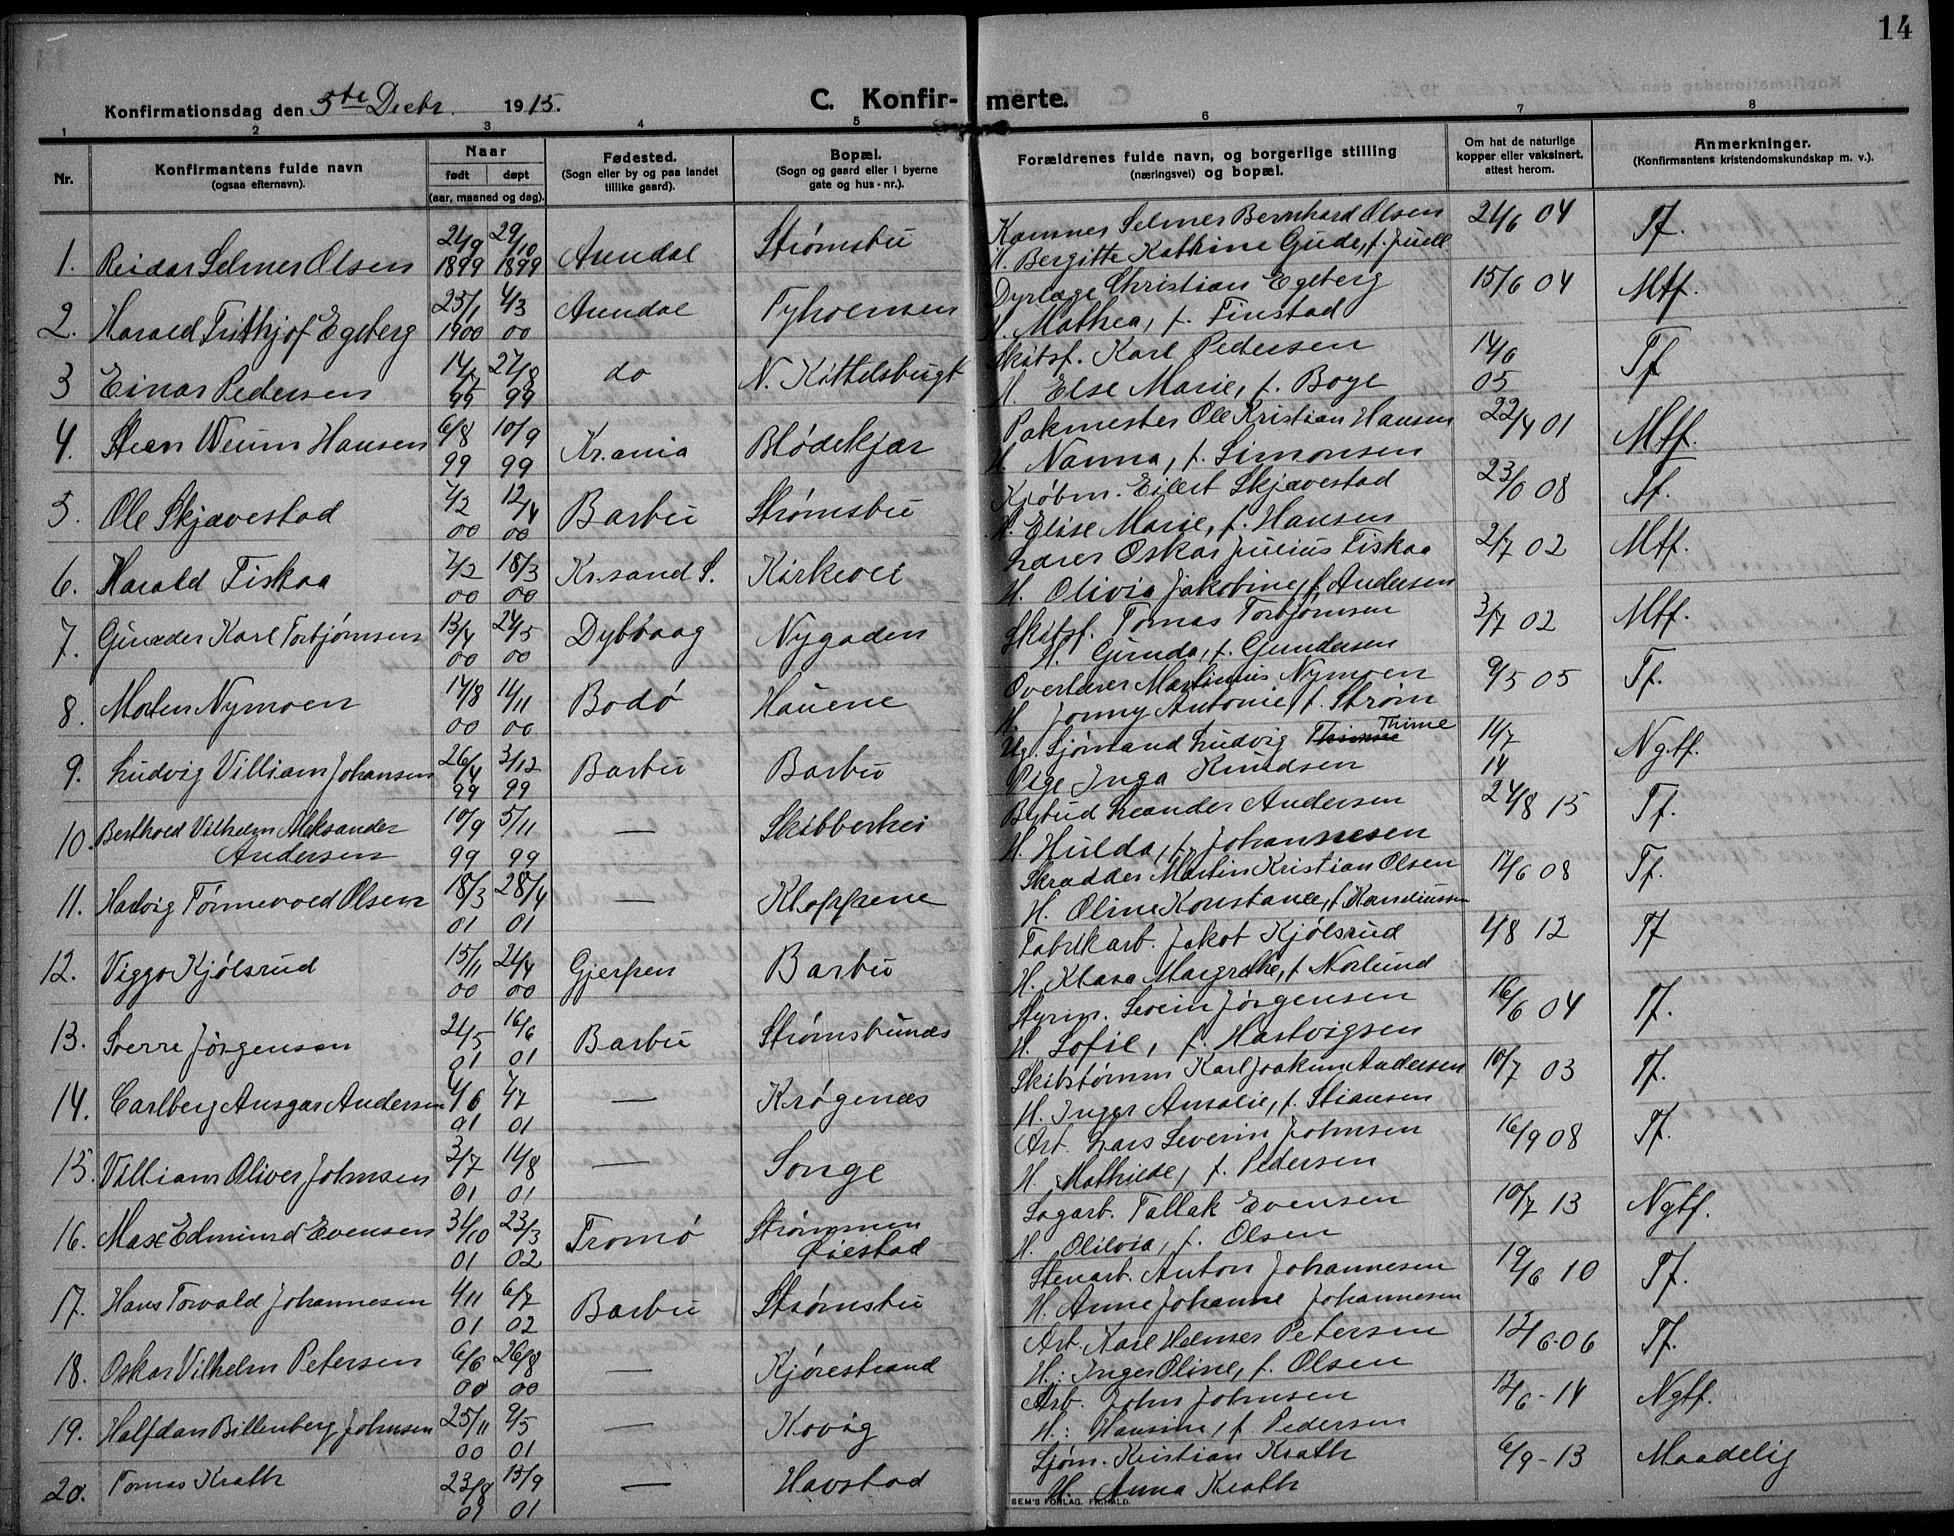 14
Konfirmationsdag den 5te Decbr. 1915. C. Konfir- merte.
1 2 3 4 5 6 7 8
Nr. Konfirmantens fulde navn (ogsaa efternavn). Naar født døpt (aar, maaned og dag). Fødested. (Sogn eller by og paa landet tillike gaard). Bopæl. (Sogn og gaard eller i byerne gate og hus-nr.). Forældrenes fulde navn, og borgerlige stilling (næringsvei) og bopæl. Om hat de naturlige kopper eller vaksinert, attest herom. Anmerkninger. (Konfirmantens kristendomskundskap m. v.).
1. Reidar Selmer Olsen 1899 29/10 1899 Arendal Strømsbu Selmer Bernhard Olsen 04 Tf.
H. Bergitte Kathine Gude, f. Juell
2. Harald Frithjof Egeberg 25/1 1900 4/3 00 Arendal Tyholmen Dyrlæge Christian Egeberg 15/6 04 Mtf.
H. Mathea, f. Finstad
3 Einar Pedersen 99 27/8 99 do N. Kittelsbugt Skibsf. Karl Pedersen 14/6 05 Tf
H. Else Marie, f. Boye
4. Steen Weum Hansen 6/8 99 10/9 99 Kr.ania Blødekjær Pakmester Ole Kristian Hansen 22/4 01 Mtf.
H. Nanna, f. Simonsen
5. Ole Skjævestad 7/2 00 12/4 00 Barbu Strømsbu Kjøbm. Eilert Skjævestad 23/6 08 Tf.
H. Elise Marie, f. Hansen
6. Harald Fiskaa 7/2 00 18/3 00 Kr.sand S. Kirkevei Lærer Oskar Julius Fiskaa 2/7 02 Mtf.
H. Olivia Jakobine, f. Andersen
7. Gunder Karl Torbjørnsen 13/4 00 24/5 00 Dybvaag Nygaden Skibsf. Tomas Torbjørnsen 3/7 02 Mtf.
H. Gunda, f. Gundersen
8. Morten Nymoen 17/8 00 11/11 00 Bodø Hauene Overlærer Martinius Nymoen 9/5 05 Tf.
H. Jonny Antonie, f. Strøm
9. Ludvig Villiam Johansen 26/4 99 3/12 99 Barbu Barbu Ug. Sjømand Ludvig Thime 14 Ngtf.
Pige Inga Knudsen
10. Berthold Vilhelm Aleksander Andersen 10/9 99 5/11 99 — Skibberhei Bybud Leander Andersen 24/8 15 Tf.
H. Hulda, f. Johannesen
11. Hartvig Tønnevold Olsen 18/3 01 28/4 01 — Kloppene Skrædder Martin Kristian Olsen 17/6 08 Tf.
H. Oline Konstance, f.
12. Viggo Kjølsrud 15/11 00 24/4 00 Gjerpen Barbu Fabrikarb. Jakob Kjølsrud 4/8 12 Tf
H. Klara Margrethe, f. Norlund
13. Sverre Jørgensen 21/5 01 16/6 01 Barbu Strømsbunæs Styrm. Severin Jørgensen 16/6 04 Tf.
H. Sofie, f. Hartvigsen
14. Carlberg Ansgar Andersen 4/6 01 4/7 01 — Krøgenæs Skibstømm Karl Joakim Andersen 10/7 03 Tf.
H. Inger Amalie, f. Stiansen
15. Villiam Oliver Johnsen 3/7 01 11/8 01 — Songe Arb. Lars Severin Johnsen 16/9 08 Tf.
H. Mathilde, f. Pedersen
16. Max Edmund Evensen 31/10 01 23/3 02 Tromø Strømmen Øiestad Sagarb. Tallak Evensen 10/7 13 Ngtf.
H. Olivia, f. Olsen
17. Hans Torvald Johannesen 4/11 01 6/7 02 Barbu Strømsbu Stenarb. Anton Johannesen 19/6 10 Tf.
H. Anne Johanne Johannesen
18. Oskar Vilhelm Petersen 6/6 00 26/8 00 — Kjørestrand Arb. Karl Helmer Petersen 12/6-06 Tf.
H.: Inger Oline, f. Olsen
19. Halfdan Billenberg Johnsen 25/11 00 9/5 01 — Kovig Arb. John Johnsen 12/6-14 Ngtf.
H.: Hansine, f. Pedersen
20. Tomas Krath 23/8 01 15/9 01 — Havstad Sjøm. Kristian Krath 6/9-13 Maadelig
H. Anna Krath
SEM'S FORLAG. FR.HALD.